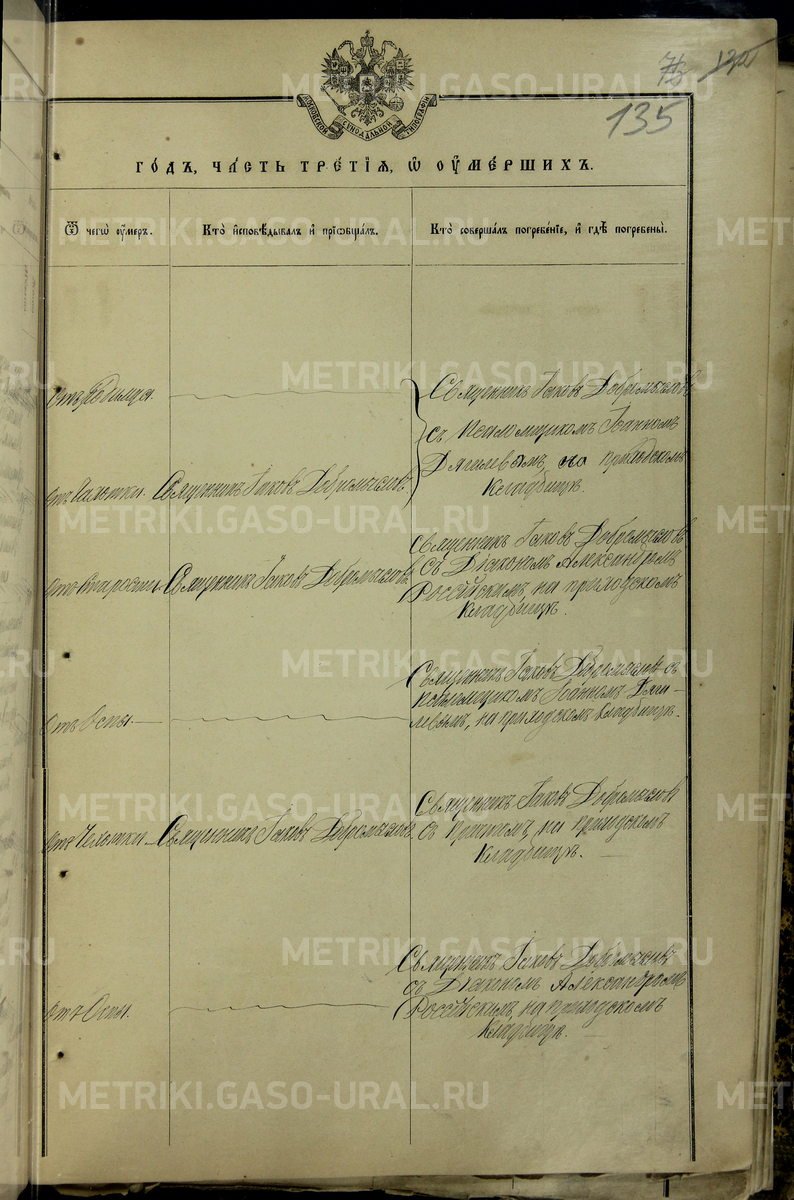 135
МОСКОВСКОЙ СѴНОДАЛЬНОЙ ТИПОГРАФІИ
ГО́ДЪ, ЧА́СТЬ ТРЕ́ТІѦ, Ѽ ОУ҆МЕ́РШИХЪ.
Ѿ чегѡ̀ оу҆́меръ.
Кто̀ и҆сповѣ́дывалъ и҆ прїѡбща́лъ.
Кто̀ соверша́лъ погребе́нїе, и҆ гдѣ̀ погребены̀.
Отъ Родимца.
Священникъ Іаковъ Добромысловъ
съ псаломщикомъ Іоанномъ
Дягилевымъ, на приходскомъ
кладбищѣ.
Отъ Чахотки.
Священникъ Іаковъ Добромысловъ
Отъ Старости.
Священникъ Іаковъ Добромысловъ
Священникъ Іаковъ Добромысловъ
съ Діакономъ Александромъ
Россійскимъ, на приходскомъ
кладбищѣ.
Отъ Оспы.
Священникъ Іаковъ Добромысловъ съ
псаломщикомъ Іоанномъ Дяги-
левымъ, на приходскомъ кладбищѣ.
Отъ Чахотки
Священникъ Іаковъ Добромысловъ
Священникъ Іаковъ Добромысловъ
съ причтомъ, на приходскомъ
кладбищѣ.
Отъ Оспы.
Священникъ Іаковъ Добромысловъ
съ Діакономъ Александромъ
Россійскимъ, на приходскомъ
кладбищѣ.
METRIKI.GASO-URAL.RU